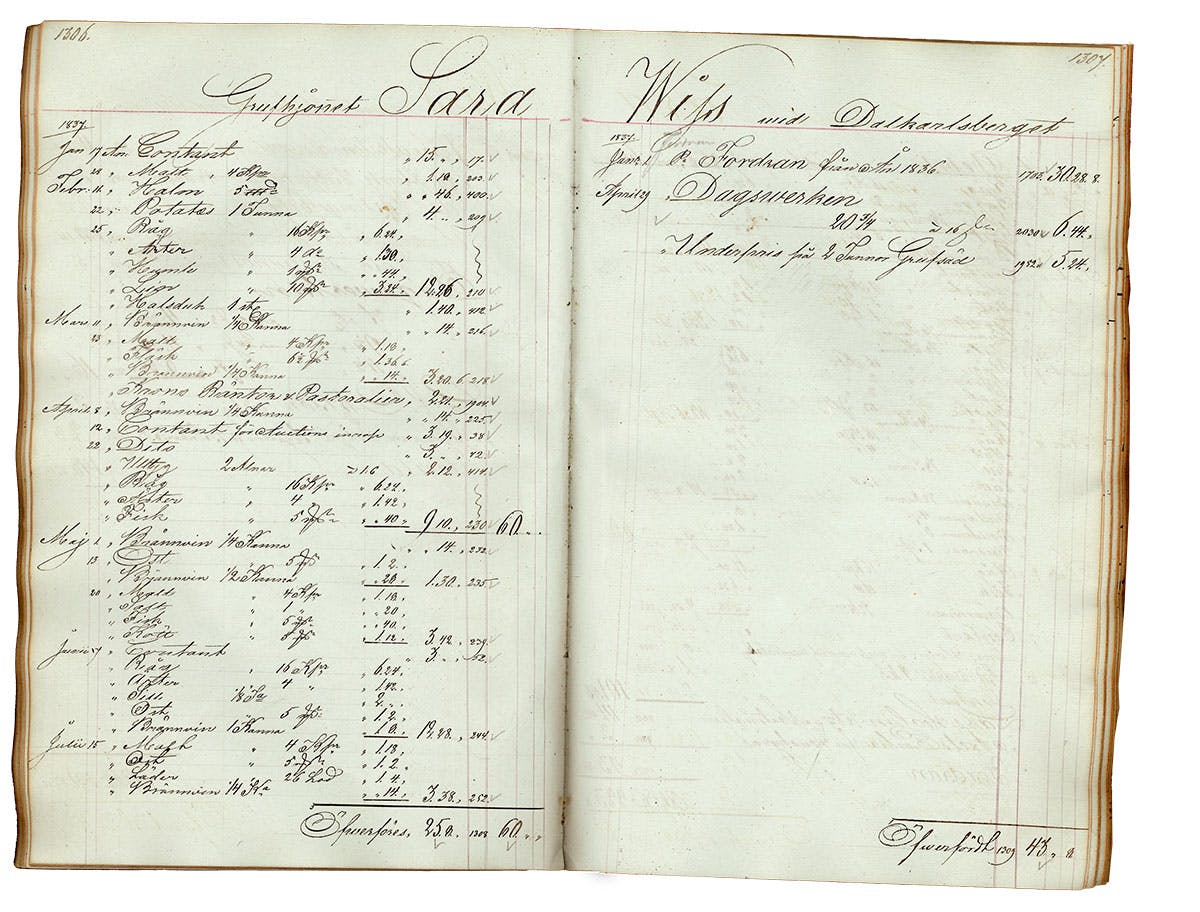 1306.
Grufhjonet Sara
1837
Jan 17 An Contant " 15. " , 17.
28 , Malt " 4 Kpr , 1.18, 203.
Febr. 11, Halm 5 " " 46, 400.
22, Potates 1 Tunna , 4. " , 209
25, Råg " 16 Kpr , 6.24,
" Ärter " 4 do , 1.30.
" Humle " 1 , " 44.
" Lin " 10 , 3.24. 12.26, 210
" Halsduk 1 st " 1.40, 412.
Mars 11, Brännvin 1/4 Kanna " " 14. , 216.
23, Malt " 4 Kpr , 1.18.
" Fläsk " 6½ , 1.36.6.
" Brännvin 1/4 Kanna , " 14. 3.20.6. 218
" Krono Räntor & Pastoralier, " 2.21. , 1904.
April 8, Brännvin 1/4 Kanna " " 14. " 225.
12, Contant för Auctions inrop " 3.19. " 38
22, Dito " 3. " , 42.
" 2 Alnar à 1.6 " 2.12, 414.
" Råg " 16 Kpr , 6.24,
" Ärter " 4 " , 1.42,
" Fisk " 5 , " 40 " 9 10. , 230 60. " "
Maj 2, Brännvin 1/4 Kanna " " 14. , 232.
13, Ost " 5 , 1. 2.
" Brännvin 1/2 Kanna , " 28. 1.30. , 235.
20, Malt " 4 Kpr , 1.18,
" Salt " 1 " , " 20,
" Fisk " 5 , " 40.
" Kött " 8 , 1.12. 3.42. , 239.
Junii 7, Contant " 3. " , 52.
" Råg " 16 Kpr , 6.24.
" Ärter " 4 " , 1.42.
" Sill 1/8 Ta , 2. "
" Ost " 5 , 1. 2.
" Brännvin 1 Kanna , 1.8. 12.28. , 244.
Julii 15, Malt " 4 Kpr , 1.18.
" Ost " 5 , 1. 2.
" Läder " 26 Lod , 1. 4.
" Brännvin 1/4 Ka , " 14. 3.38. , 252.
Öfwerföres, 25.8. 1308 60. " "
1307.
Wiss wid Dalkarlsberget
1837
Janr 1. Pr Fordran från År 1836 1705 30.28.8.
April 29 " Dagswerken
20 3/4 à 16 2030 6.44.
" Underpris på 2 Tunnor Grufsäd 1952 5.24.
Öfwerfördt 1309 43. " 8